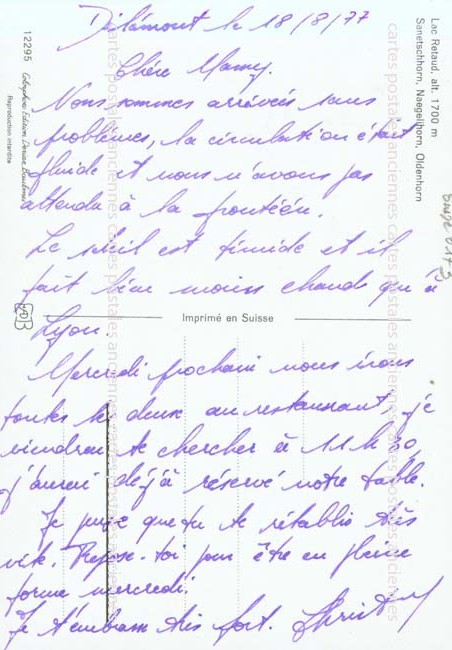 Delémont le 18/8/77
Chère Mamy.
Nous sommes arrivées sans
problèmes, la circulation était
fluide et nous n'avons pas
attendu à la frontière.
Le soleil est timide et il
fait bien moins chaud qu'à
Lyon.
Mercredi prochain nous irons
toutes les deux au restaurant, je
viendrai te chercher à 11 h 30,
j'aurai déjà réservé notre table.
Je pense que tu te rétablis très
vite. Repose-toi pour être en pleine
forme mercredi.
Je t'embrasse très fort.
Imprimé en Suisse
Lac Retaud, alt. 1700 m
Sanetschhorn, Naegelihorn, Oldenhorn
12295
Reproduction interdite
cartes postales anciennes cartes postales anciennes cartes postales anciennes
cartes postales anciennes cartes postales anciennes cartes postales anciennes